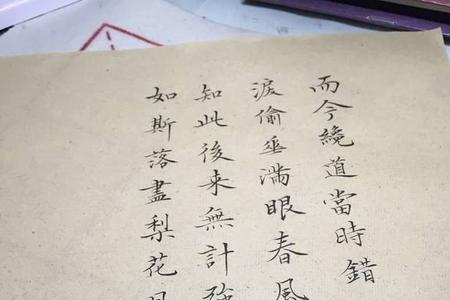 而今繞道當時錯
淚偷垂滿眼春風
知此後来無計強
如斯落盡梨花月